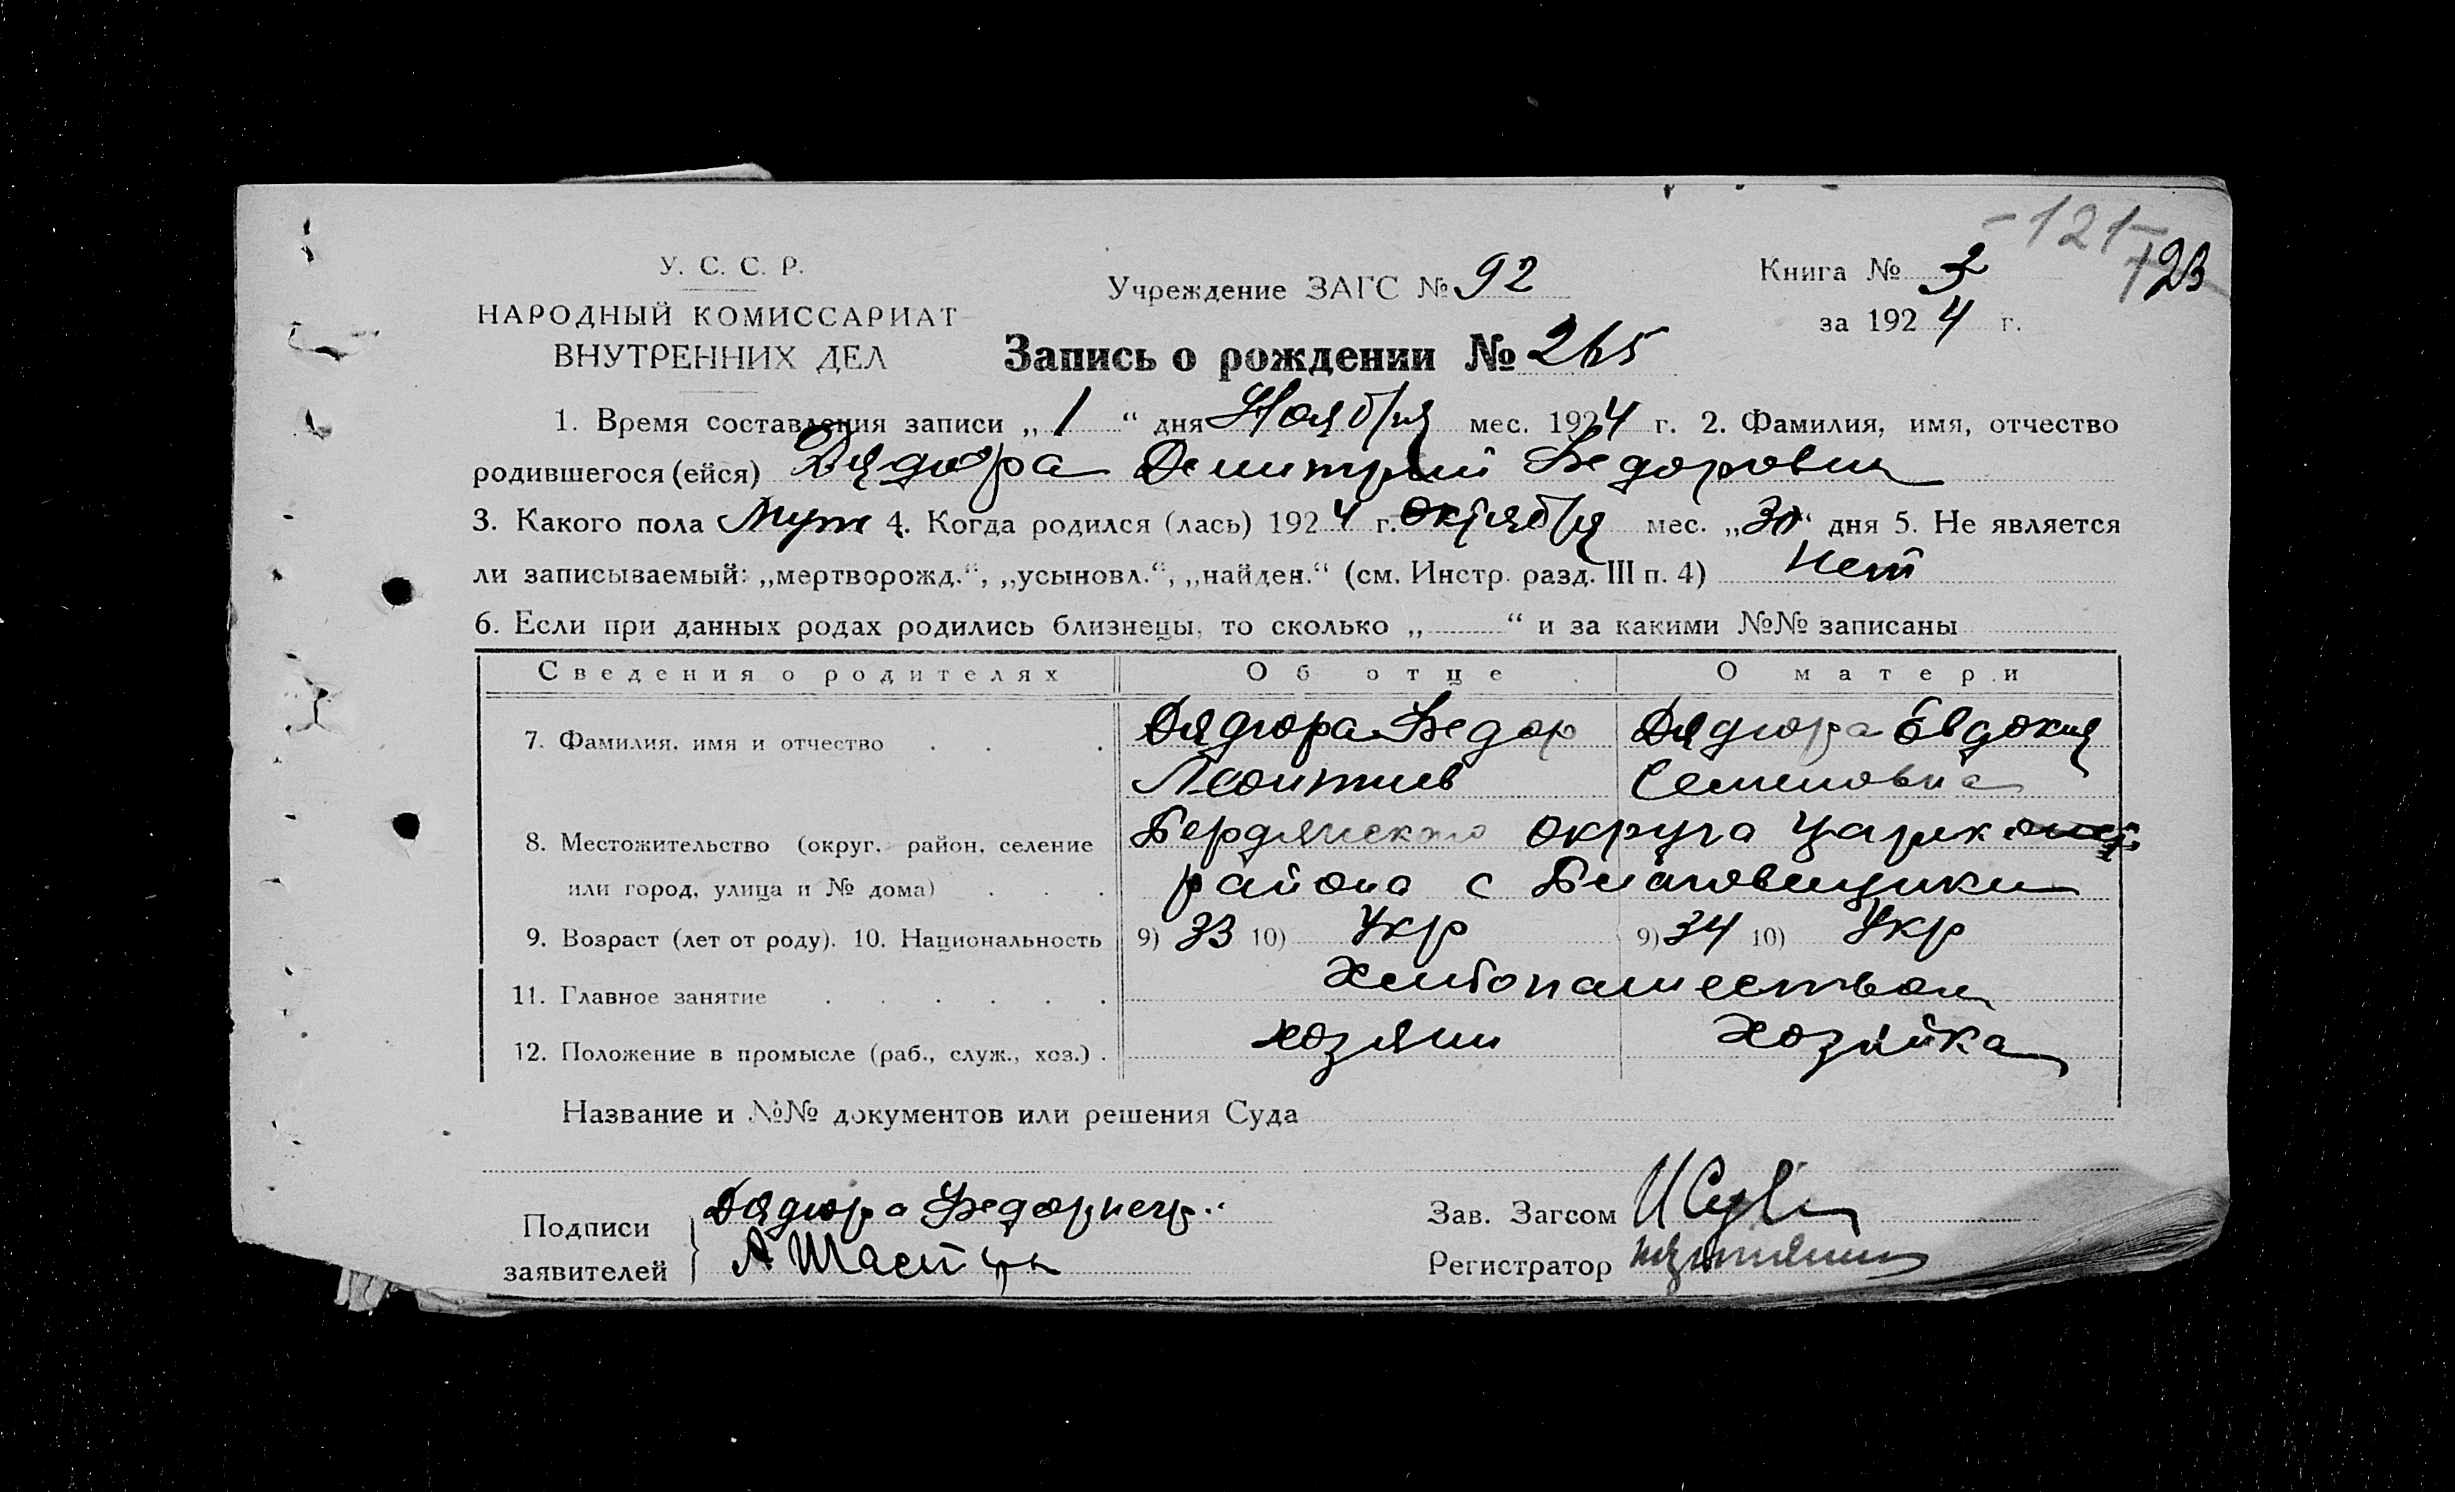 -121-
123
У. С. С. Р.
НАРОДНЫЙ КОМИССАРИАТ
ВНУТРЕННИХ ДЕЛ
Учреждение ЗАГС № 92
Книга № 3
за 1924 г.
Запись о рождении № 265
1. Время составления записи „ 1 “ дня Ноября мес. 1924 г. 2. Фамилия, имя, отчество
родившегося (ейся) Дядюра Димитрий Федорович
3. Какого пола Муж 4. Когда родился (лась) 1924 г. Октября мес. „30“ дня 5. Не является
ли записываемый: „мертворожд.“, „усыновл.“, „найден.“ (см. Инстр. разд. III п. 4) Нет
6. Если при данных родах родились близнецы, то сколько „ “ и за какими №№ записаны
Сведения о родителях Об отце О матери
7. Фамилия, имя и отчество Дядюра Федор Дядюра Евдокия
Леонтиев Семеновна
8. Местожительство (округ, район, селение Бердянского округа
или город, улица и № дома) района с
9. Возраст (лет от роду). 10. Национальность 9) 33 10) Укр 9) 34 10) Укр
11. Главное занятие
12. Положение в промысле (раб., служ., хоз.) хозяин Хозяйка
Название и №№ документов или решения Суда
Подписи Дядюра Федор
заявителей
Зав. Загсом
Регистратор